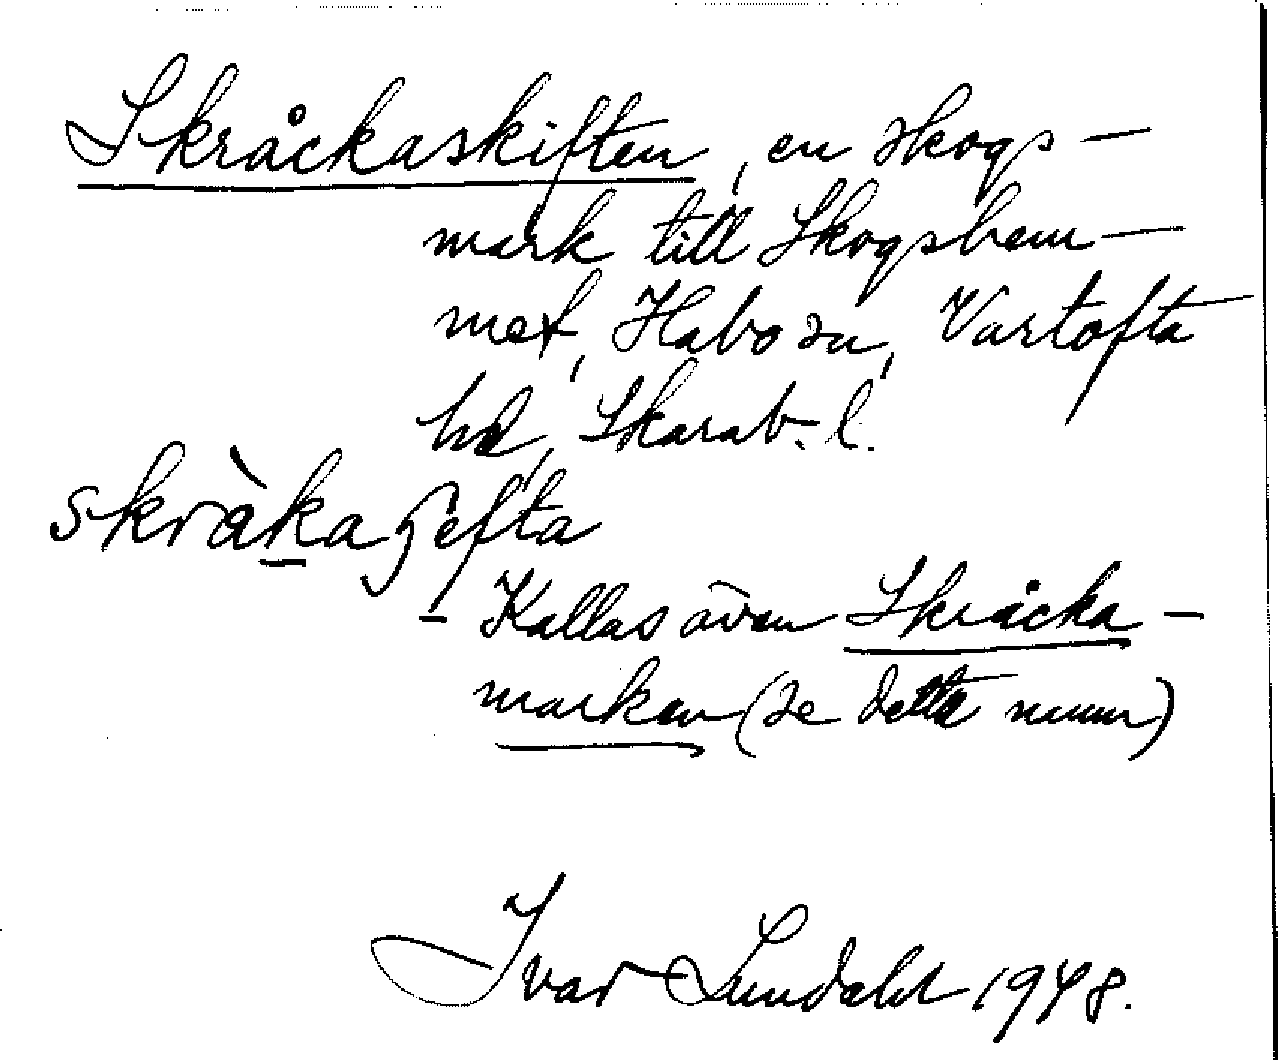 Skråckaskiften, en skogs-
mark till Skogshem-
met, Habo sn, Vartofta
hd, Skarab. l.
skràkaʒefta
- Kallas även Skråcka-
marken (se detta namn)
Ivar Lundahl 1948.